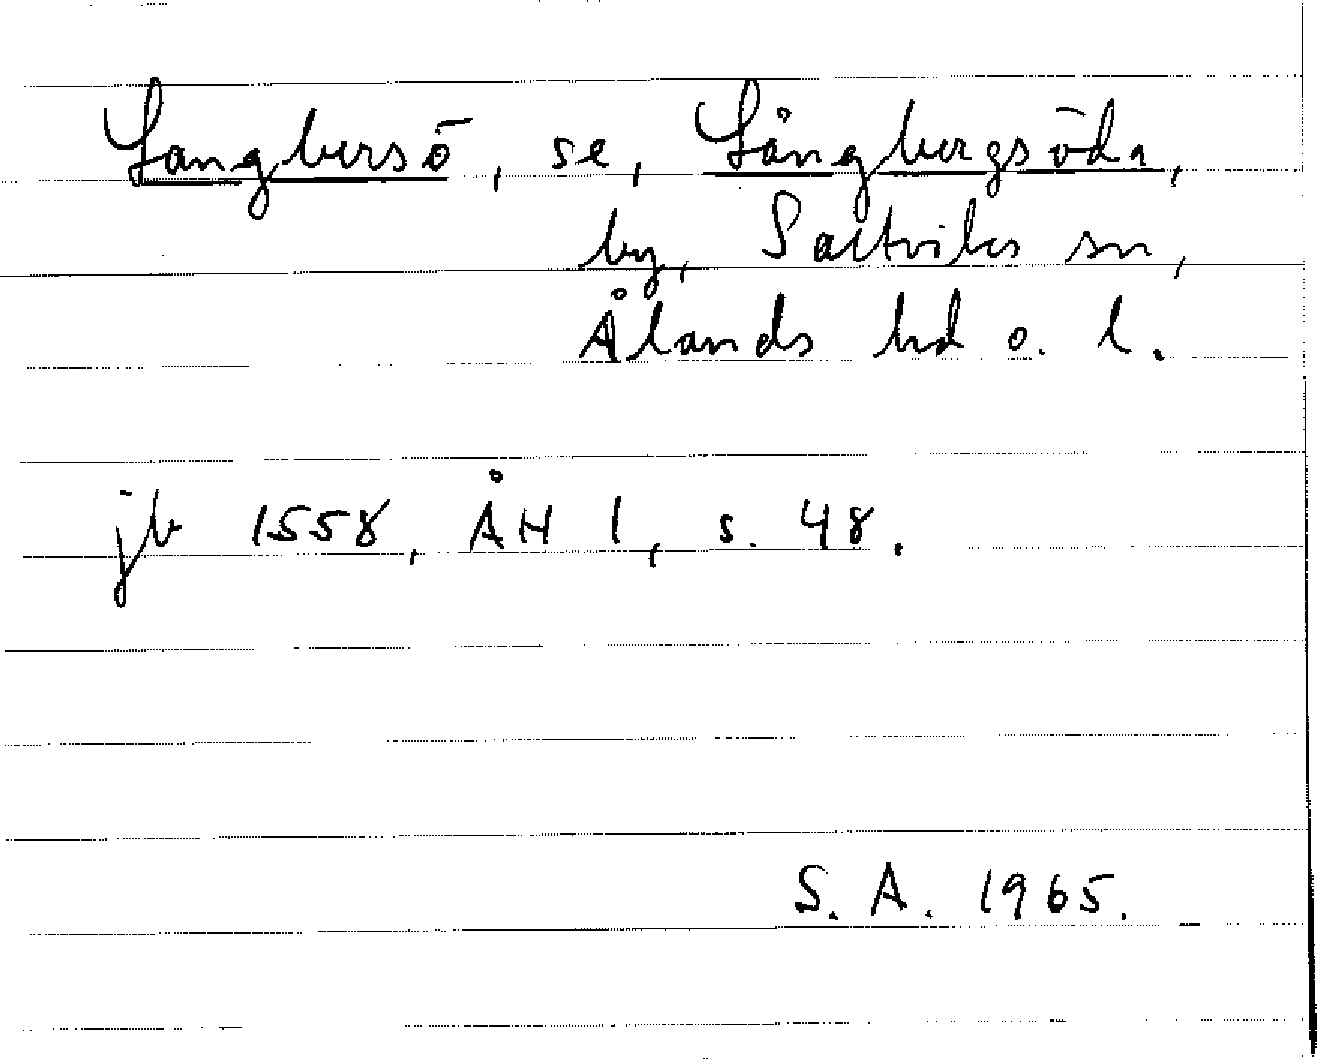 Langbersö, se, Långbergsöda,
by, Saltviks sn,
Ålands hd o. l.
jb 1558, ÅH 1, s. 48.
S. A. 1965.